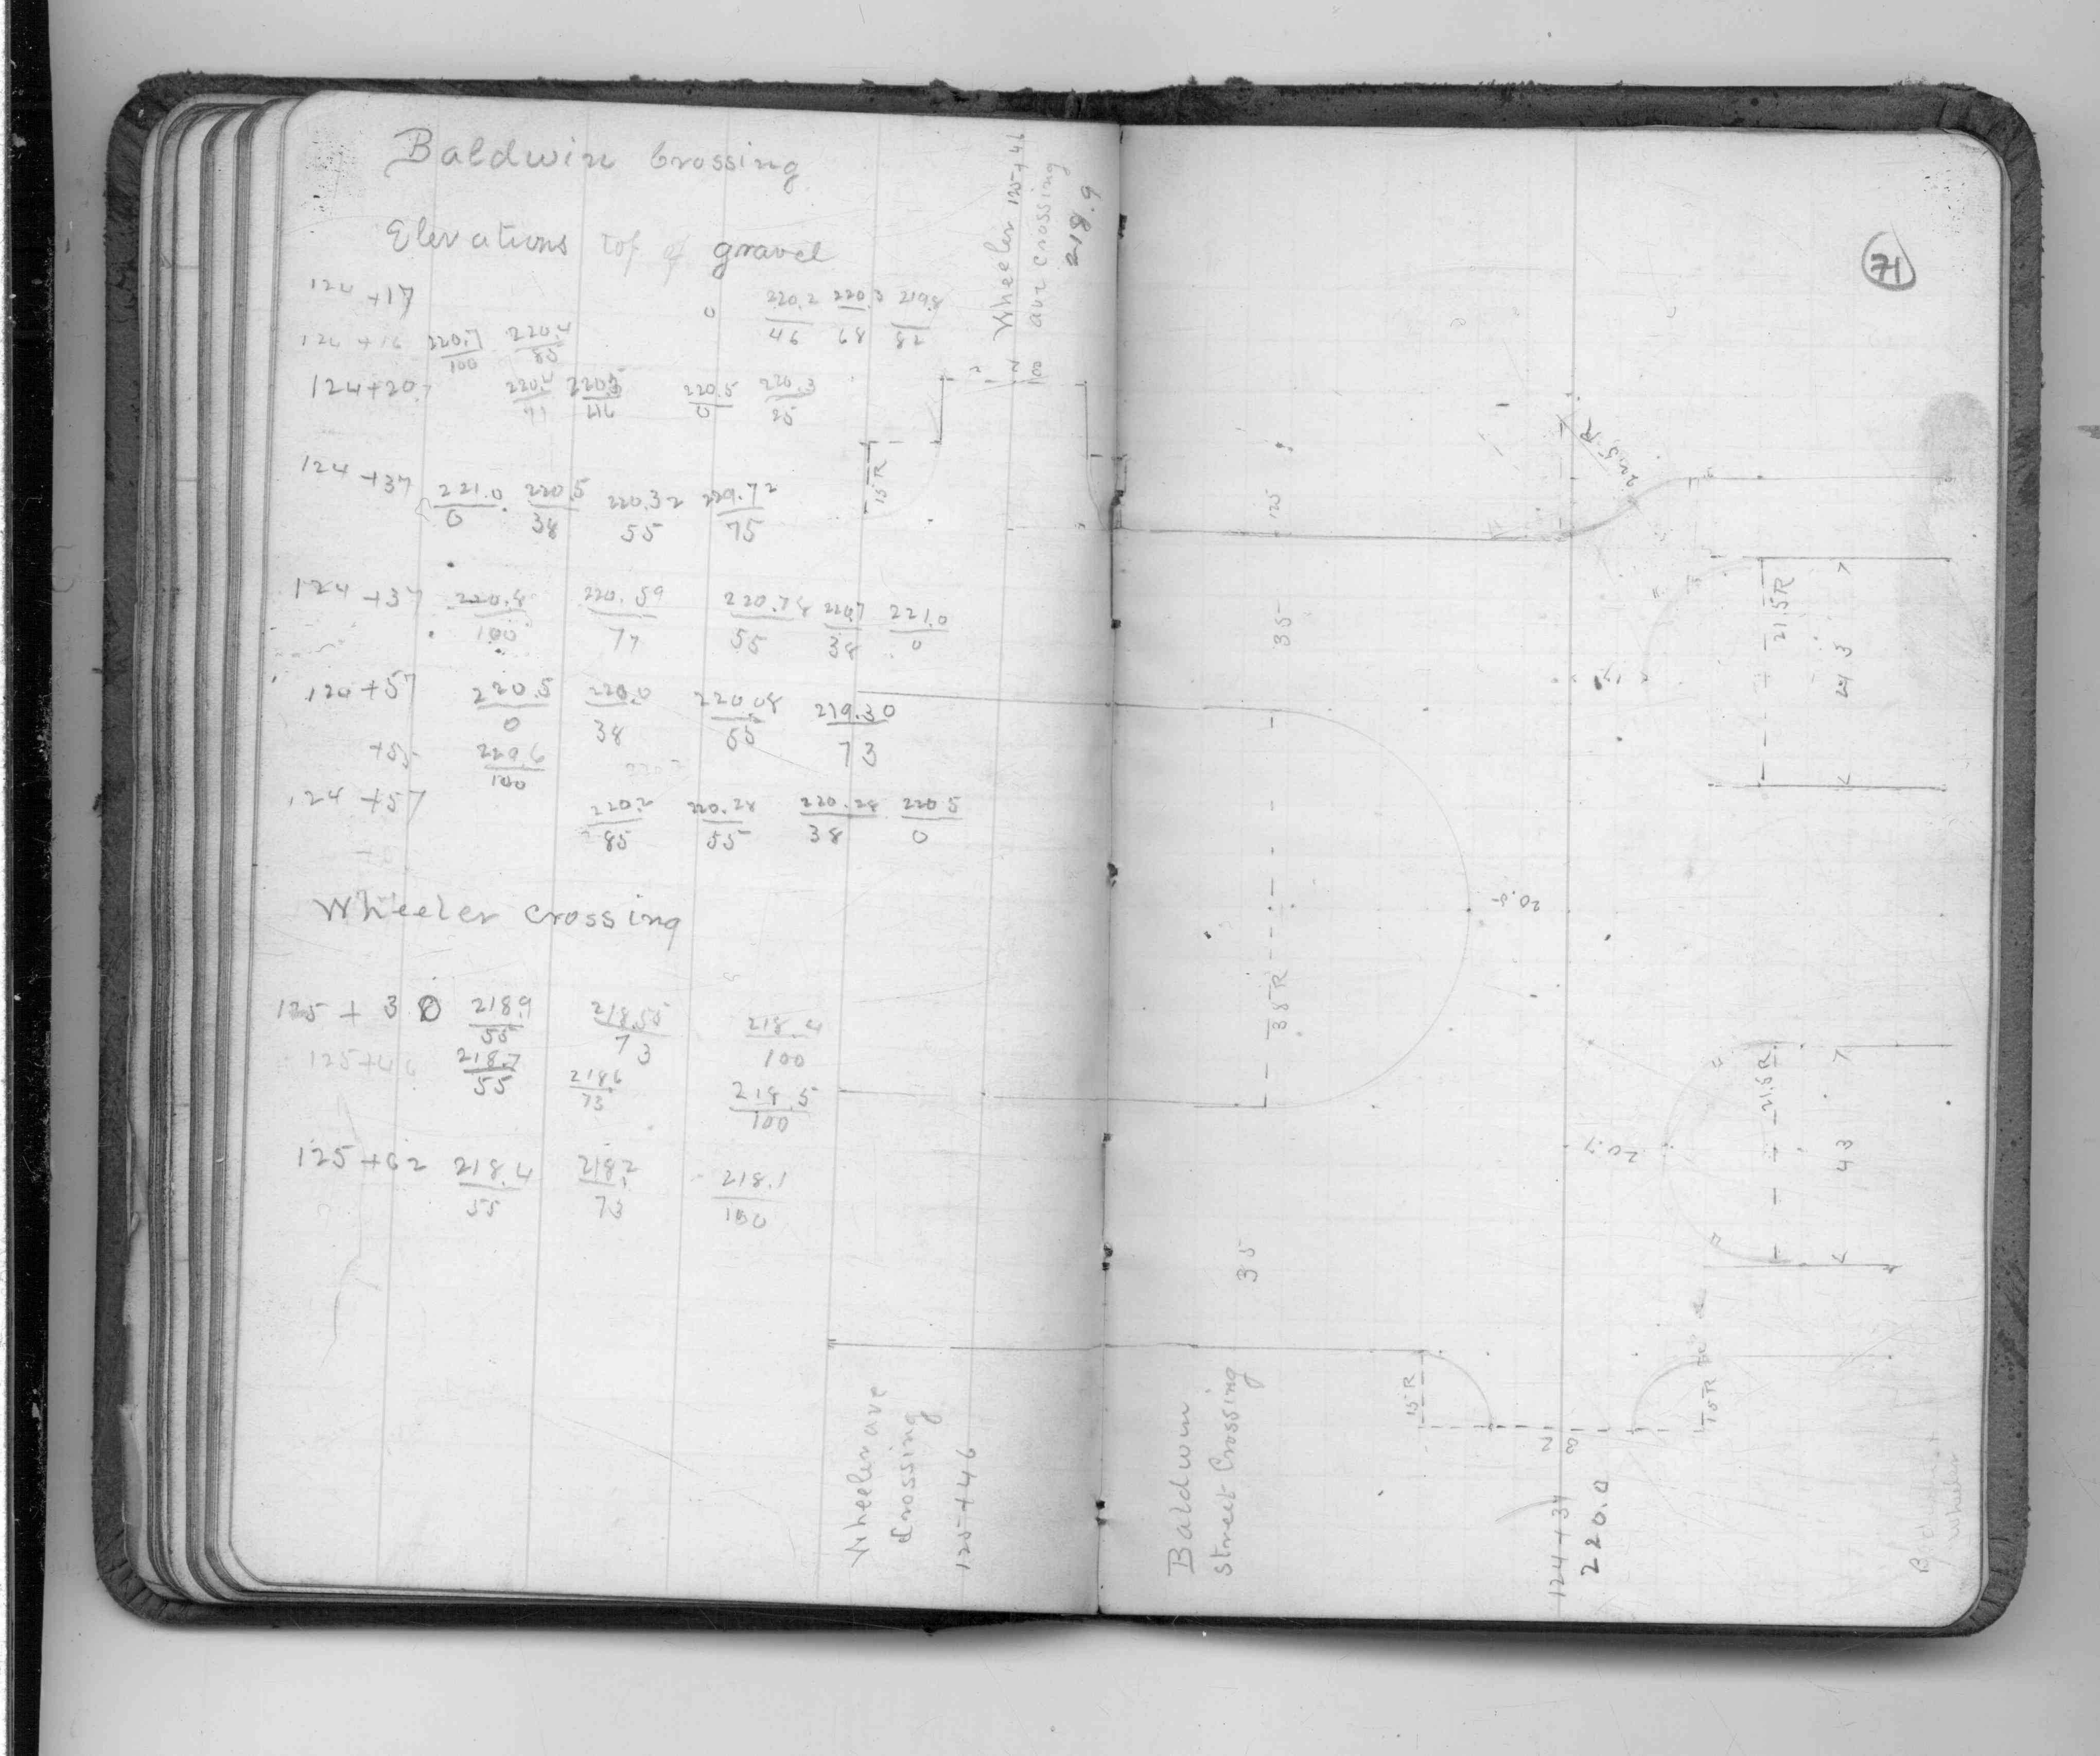 Baldwin Crossing
Elevations top of gravel
124 +17 0 220.2/46 68 219.8/82
124 +16 220.7/100 220.4/85
124+20 220.4/71 220.5/46 220.5/0 220.3/25
124 +37 221.0/0 220.5/38 220.32/55 219.72/75
124 +37 220.8/100 220.59/77 220.78/55 220.7/38 221.0/0
124 +57 220.5/0 220.0/38 220.08/55 219.30/73
+55 220.6/100
124 +57 220.2/85 220.28/55 220.28/38 220.5/0
Wheeler crossing
125 + 30 218.9/55 218.55/73 218.4/100
125+46 218.7/55 218.6/73 218.5/100
125+62 218.4/55 218.2/73 218.1/100
Wheeler 125+46
ave crossing
218.9
15 R
Wheeler ave
Crossing
125+46
71
125
35
38 R
20.5
35
21.5 R
7
43
21.5 R
20.7
7
43
15 R
15 R
Baldwin
Street Crossing
124+37
220.0